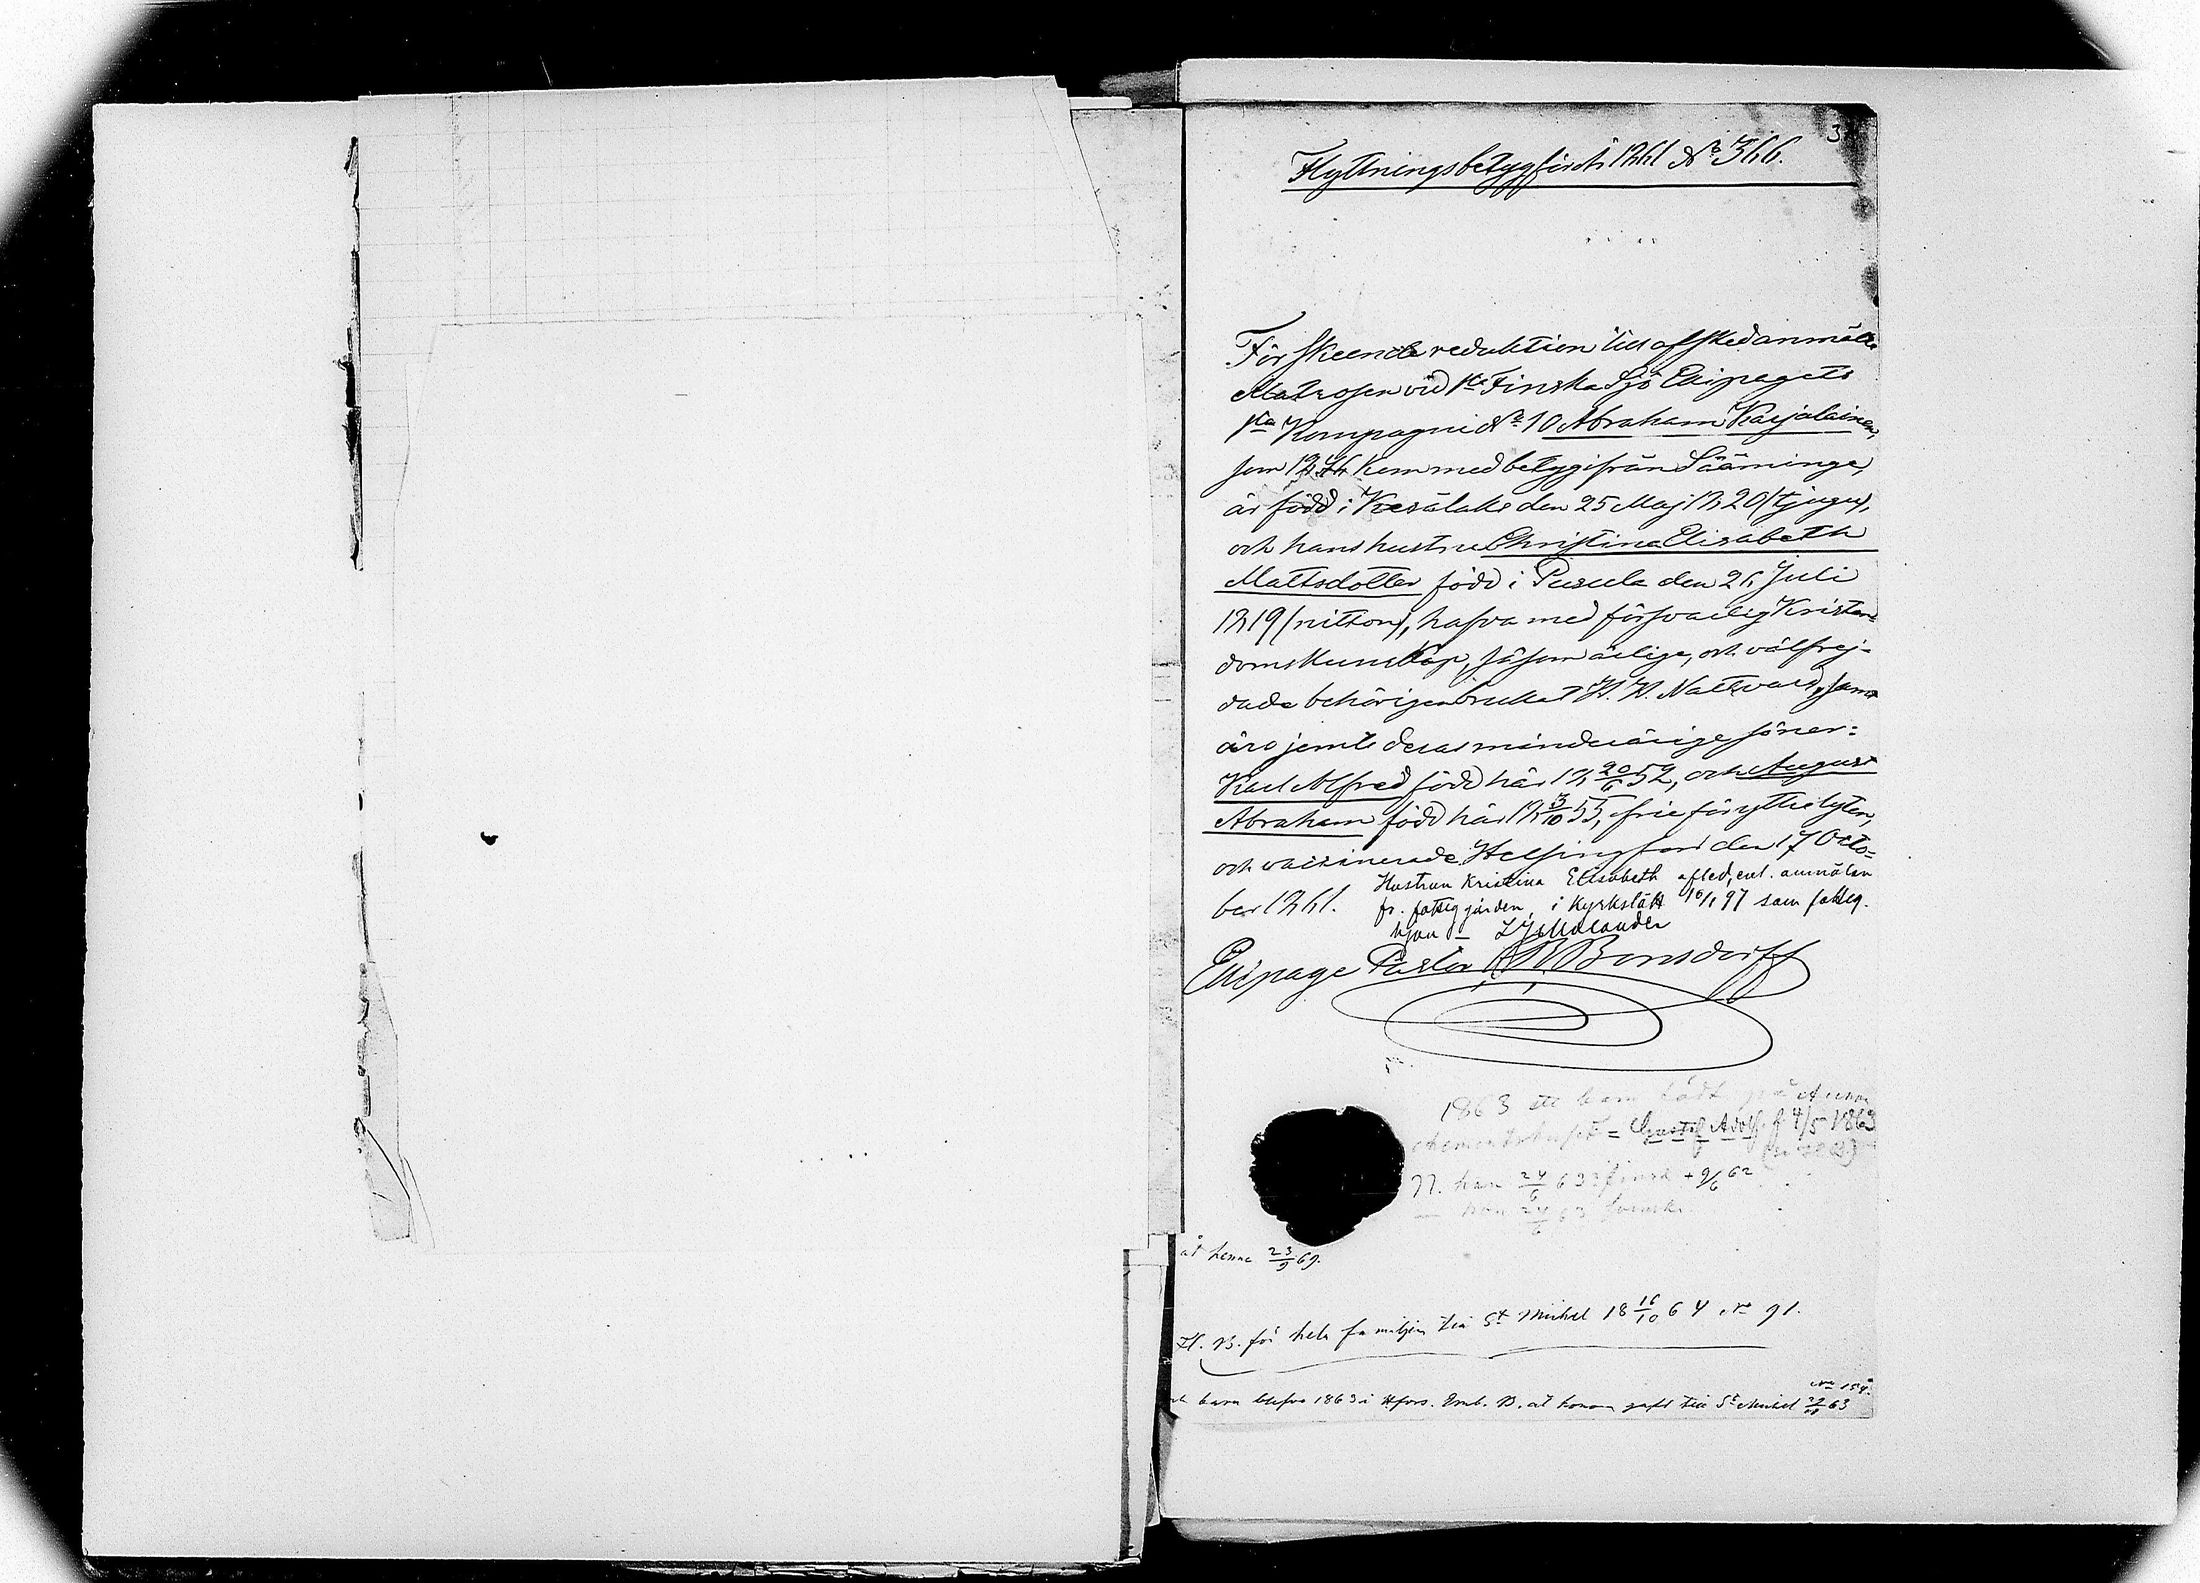 3
Flyttningsbetyg för år 1861 No 366.
För skeende reduktion till afsked anmälte
Matrosen vid 1sta Finska Sjö Ekipagets
1sta Kompagni No 10 Abraham Karjalainen,
som 1846 kom med betyg ifrån Sääminge,
är född i Kesälaks den 25 Maj 1820 (tjugu),
och hans hustru Christina Elisabeth
Mattsdotter född i Pusula den 26 Juli
1819 (nitton), hafva med försvarlig Kristen-
domskunskap, såsom ärlige, och välfrej-
dade behörigen brukat H. H. Nattvard, samt
äro jemte deras minderårige söner:
Karl Alfred född här 18 20/6 52, och August
Abraham född här 18 3/10 55, frie för yttre lyten,
och vaccinerade. Helsingfors den 17 Octo-
ber 1861.
Hustrun Kristina Elisabeth afled, enl. anmälan
fr. fattiggården i Kyrkslätt 10/1 97 som fattig-
hjon –
Ekipage Pastor Bonsdorff
1863 ett barn födt på
= Gustaf Adolf f. 4/5 1863
N. han 24/6 63 + 9/6 62
— hon 24/6 63
åt henne 23/9 69.
Fl. B. för hela familjen till St Michel 18 16/10 64 No 91.
No 154.
barn blefvo 1863 i Hfors. B. åt honom gafs till St Michel 63